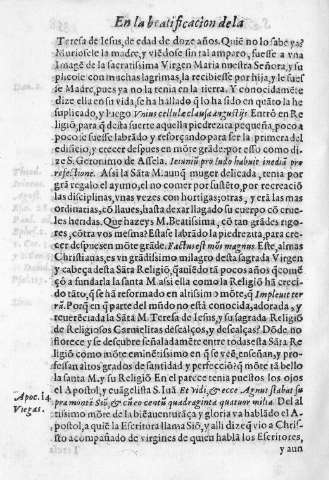 En la beatificacion de la
Teresa de Iesus, de edad de doze años. Quiē no lo sabe ya?
Muriosele la madre, y viēdose sin tal amparo, fuesse a vna
Imagē de la sacratissima Virgen Maria nuestra Señora, y su
plicole con muchas lagrimas, la recibiesse por hija, y le fues
se Madre, pues ya no la tenia en la tierra. Y conocidamēte
dize ella en su vida, se ha hallado q̄ lo ha sido en quāto la he
suplicado, y luego Vnius cellulæ clausa angustijs. Entrò en Re
ligiō, para q̄ desta suerte aquella piedrezita pequeña, poco a
poco se fuesse labrādo y esforçando para ser la primera del
edificio, y crecer despues en mōte grāde: por esso como di-
ze S. Geronimo de Assela. Ieiuniū pro ludo habuit inediā pro
refectione. Assi la Sāta M. aunq̄ muger delicada, tenia por
grā regalo el ayuno, el no comer por sustēto, por recreaciō
las disciplinas, vnas vezes con hortigas; otras, y erā las mas
ordinarias, cō llaues, hasta dexar llagado su cuerpo cō crue-
les heridas. Que hazeys M. Beatissima, cō tan grādes rigo-
res, cōtra vos mesma? Estase labrādo la piedrezita, para cre-
cer despues en mōte grāde. Factus est mōs magnus. Este, almas
Christianas, es vn grādissimo milagro desta sagrada Virgen
y cabeça desta Sāta Religiō, q̄ auiēdo tā pocos años q̄ comē
çò a fundarla la santa M. assi ella como la Religiō hā creci-
do tāto, q̄ se hā reformado en altissimo mōte, q̄ Impleuit ter
rā. Porq̄ en q̄ parte del mūdo no està conocida, adorada, y
reuerēciada la Sāta M. Teresa de Iesus, y su sagrada Religiō
de Religiosos Carmelitas descalços, y descalças? Dōde no
florece y se descubre señaladamēte entre todas esta Sāta Re
ligiō como mōte eminētissimo en q̄ se veē, enseñan, y pro-
fessan altos grados de santidad y perfecciō? q̄ mōte tā bello
la santa M. y su Religiō En el parece tenia puestos los ojos
el Apostol, y euāgelista S. Iuā Et vidi, & ecce Agnus stabas su
pra montē Siō, & cū eo centū quadraginta quatuor milia. Del al
tissimo mōte de la biēauenturāça y gloria va hablādo el A-
postol, a quiē la Escritura llama Siō, y alli dize q̄ vio a Chris-
sto acompañado de virgines de quien hablā los Escritores,
y aun
Apoc. 14
Viegas.